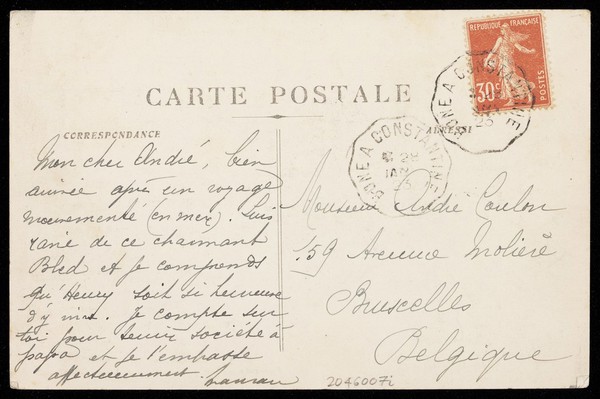 REPUBLIQUE FRANÇAISE
30c
POSTES
BONE A CONSTANTINE
25
CARTE POSTALE
CORRESPONDANCE
ADRESSE
BONE A CONSTANTINE
28
JANV
25
Mon cher André, bien
arrivée après un voyage
mouvementé (en mer). Suis
ravie de ce charmant
Bled et je comprends
qu'Henry soit si heureuse
d'y vivre. Je compte sur
toi pour tenir société à
papa et je t'embrasse
affectueusement.
Monsieur André Coulon
159 Avenue Molière
Bruxelles
Belgique
2046007i